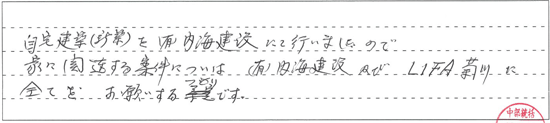 自宅建築(新築)を(有)内海建設にて行いましたので
家に関連する案件については(有)内海建設及びLIFA菊川に
全てを お願いする つもりです。
中部観持